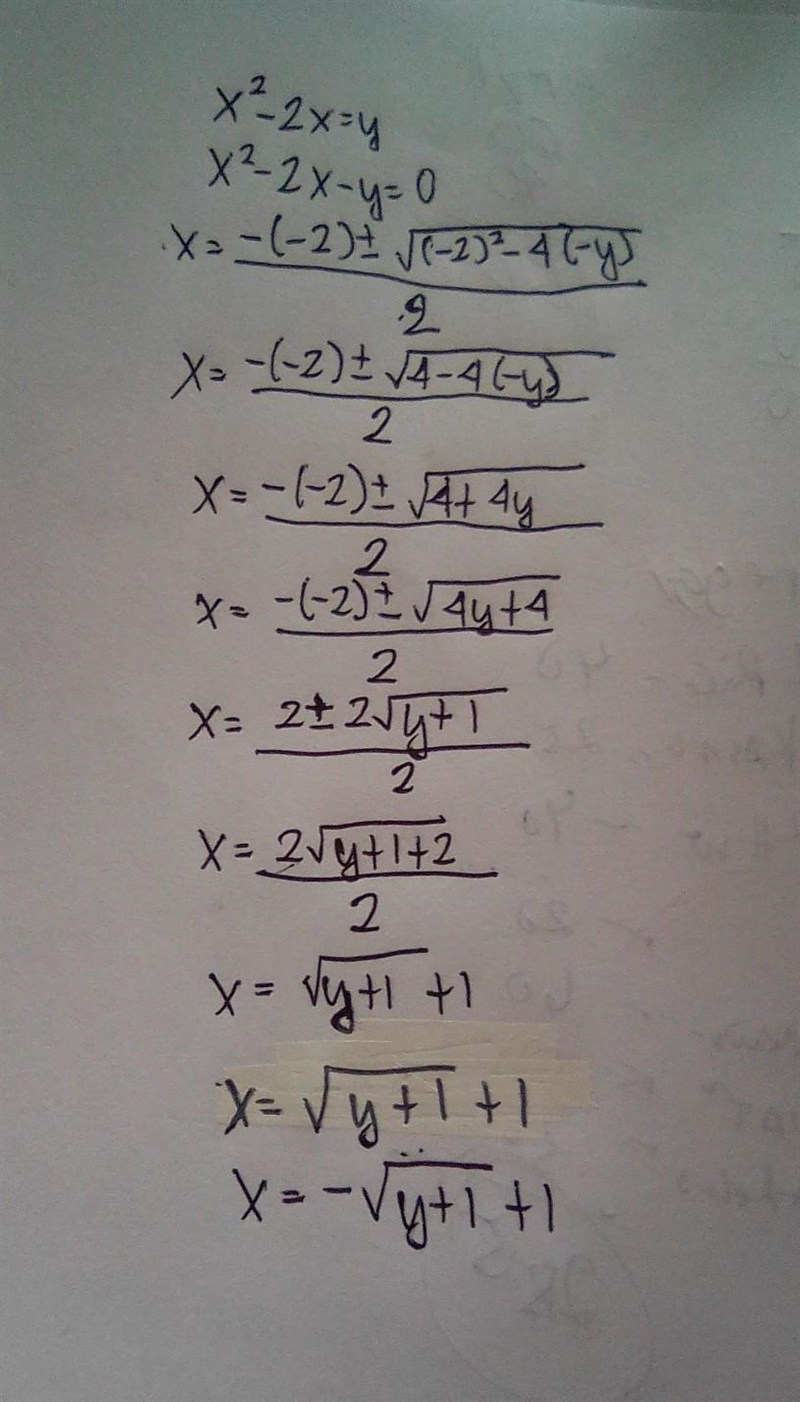 x²-2x=y
x²-2x-y=0
x= -(-2)± √(-2)²-4(-y) / 2
x= -(-2)± √4-4(-y) / 2
x= -(-2)± √4+4y / 2
x= -(-2)± √4y+4 / 2
x= 2±2√y+1 / 2
x= 2√y+1+2 / 2
x= √y+1 +1
x= √y+1 +1
x= -√y+1 +1